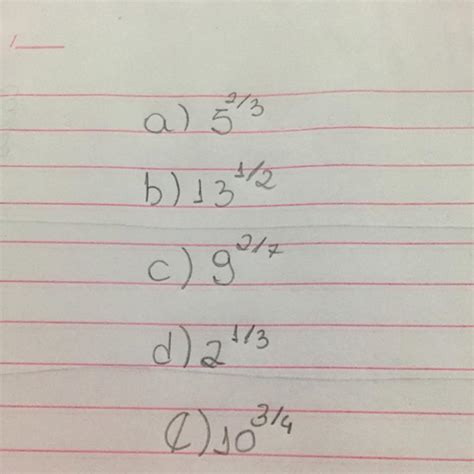 a) 5^2/3
b) 13^1/2
c) 9^2/7
d) 2^1/3
e) 10^3/4